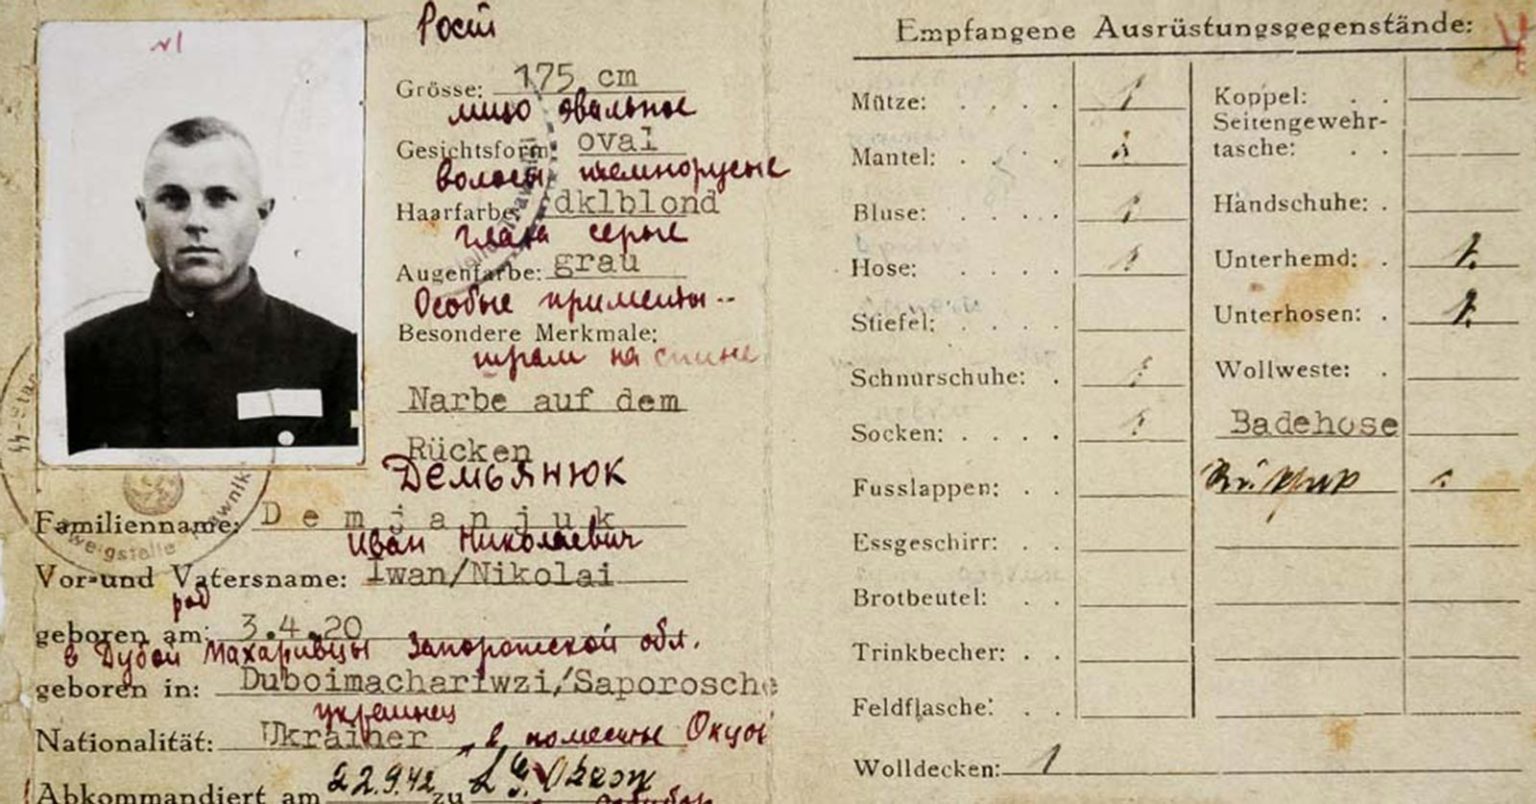 Рост
Grösse: 175 cm
лицо овальное
Gesichtsform: oval
волосы темнорусые
Haarfarbe: dklblond
глаза серые
Augenfarbe: grau
Особые приметы--
Besondere Merkmale:
шрам на спине
Narbe auf dem
Rücken
Демьянюк
Familienname: Demjanjuk
Иван Николаевич
Vor-und Vatersname: Iwan/Nikolai
род
geboren am: 3.4.20
в Дубой Махаривцы Запорожской обл.
geboren in: Duboimachariwzi/Saporosche
украинец
Nationalität: Ukrainer
Abkommandiert am 22.9.42 zu L.G. Okzow
Empfangene Ausrüstungsgegenstände:
Mütze: . . . . 1
Mantel: . . . . 1
Bluse: . . . . 1
Hose: . . . . 1
Stiefel: . . . .
Schnürschuhe: . 1
Socken: . . . . 1
Fusslappen: . .
Essgeschirr: . .
Brotbeutel: . .
Trinkbecher: . .
Feldflasche: . .
Wolldecken: 1
Koppel: . .
Seitengewehr-
tasche: . .
Handschuhe: .
Unterhemd: . 1.
Unterhosen: . 1.
Wollweste: .
Badehose